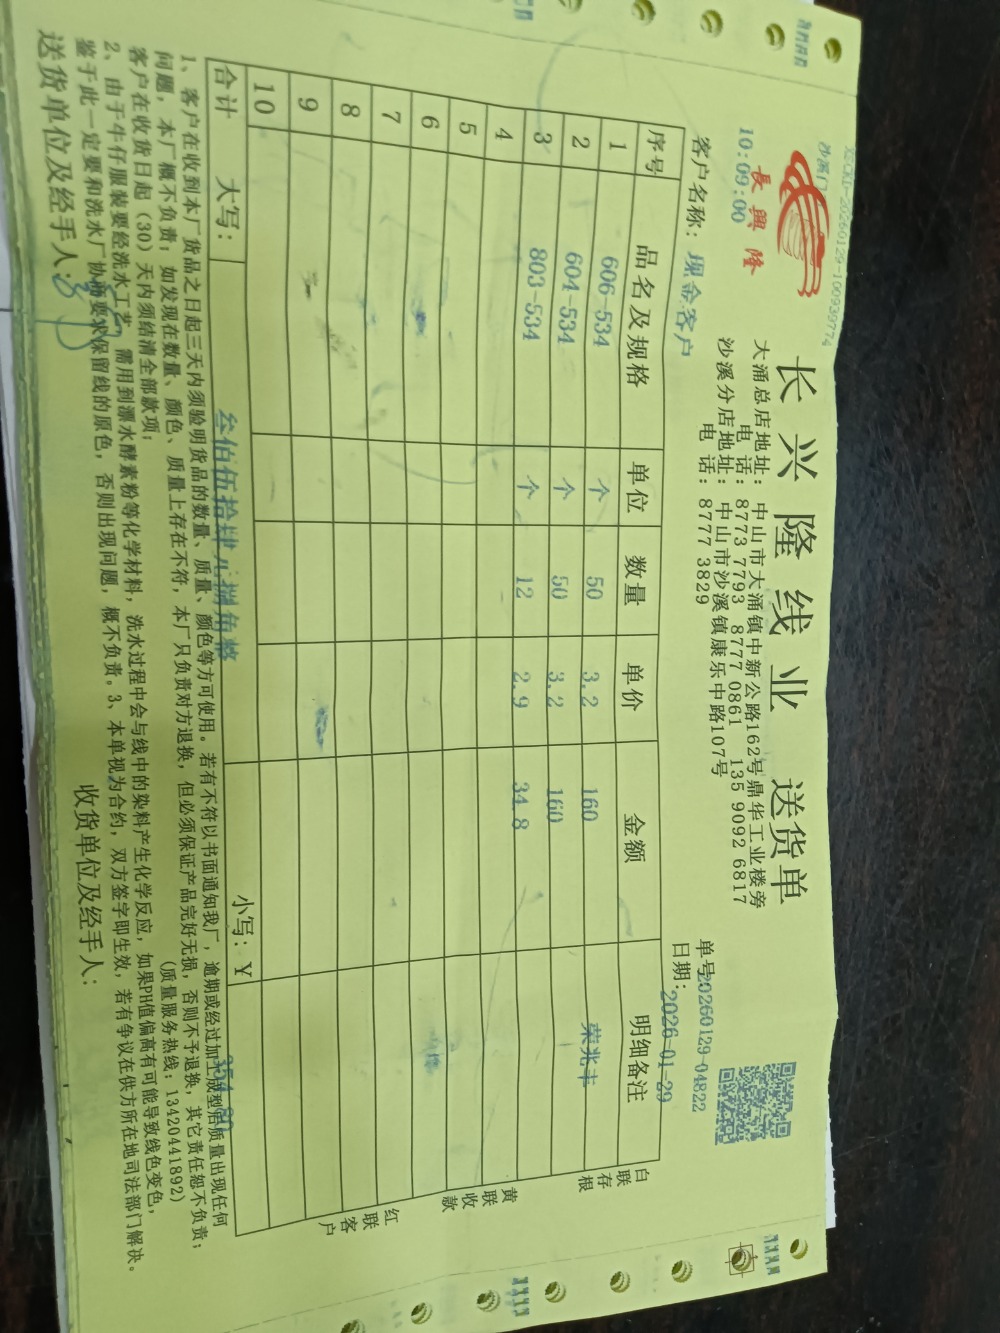 沙溪门
10:09:00
長興隆
长兴隆线业 送货单
大涌总店地址：中山市大涌镇中新公路162号鼎华工业楼旁
电 话：8773 7793 8777 0861 135 9092 6817
沙溪分店地址：中山市沙溪镇康乐中路107号
电 话：8777 3829
单号:20260129-04822
客户名称：现金客户 日期：2026-01-29
序号 品名及规格 单位 数量 单价 金额 明细备注
1 606-534 个 50 3.2 160 荣兆丰
2 604-534 个 50 3.2 160
3 803-534 个 12 2.9 34.8
4
5
6
7
8
9
10
合计 大写： 叁佰伍拾肆元捌角整 小写：￥ 354.80
白联存根
黄联收款
红联客户
1、客户在收到本厂货品之日起三天内须验明货品的数量、质量、颜色等方可使用。若有不符以书面通知我厂，逾期或经过加工成型后质量出现任何
问题，本厂概不负责；如发现在数量、颜色、质量上存在不符，本厂只负责对方退换，但必须保证产品完好无损，否则不予退换，其它责任恕不负责；
客户在收货日起（30）天内须结清全部款项； （质量服务热线：13420441892）
2、由于牛仔服装要经洗水工艺，需用到漂水酵素粉等化学材料，洗水过程中会与线中的染料产生化学反应，如果PH值偏高有可能导致线色变色，
鉴于此一定要和洗水厂协商要求保留线的原色，否则出现问题，概不负责。3、本单视为合约，双方签字即生效，若有争议在供方所在地司法部门解决。
送货单位及经手人: 收货单位及经手人：